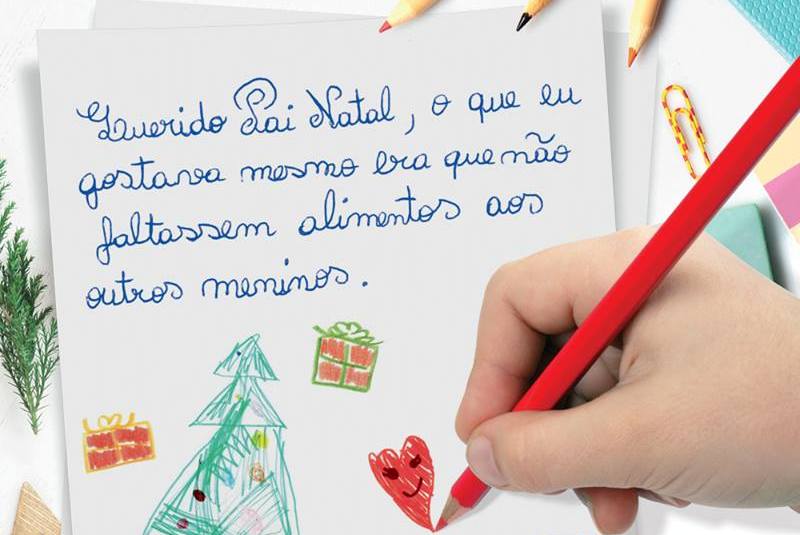 Querido Pai Natal, o que eu
gostava mesmo era que não
faltassem alimentos aos
outros meninos.